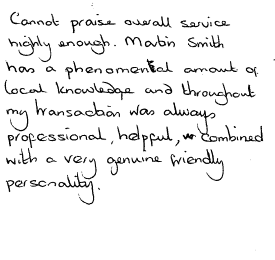 Cannot praise overall service
highly enough. Martin Smith
has a phenomental amount of
local knowledge and throughout
my transaction was always
professional, helpful, combined
with a very genuine friendly
personality.